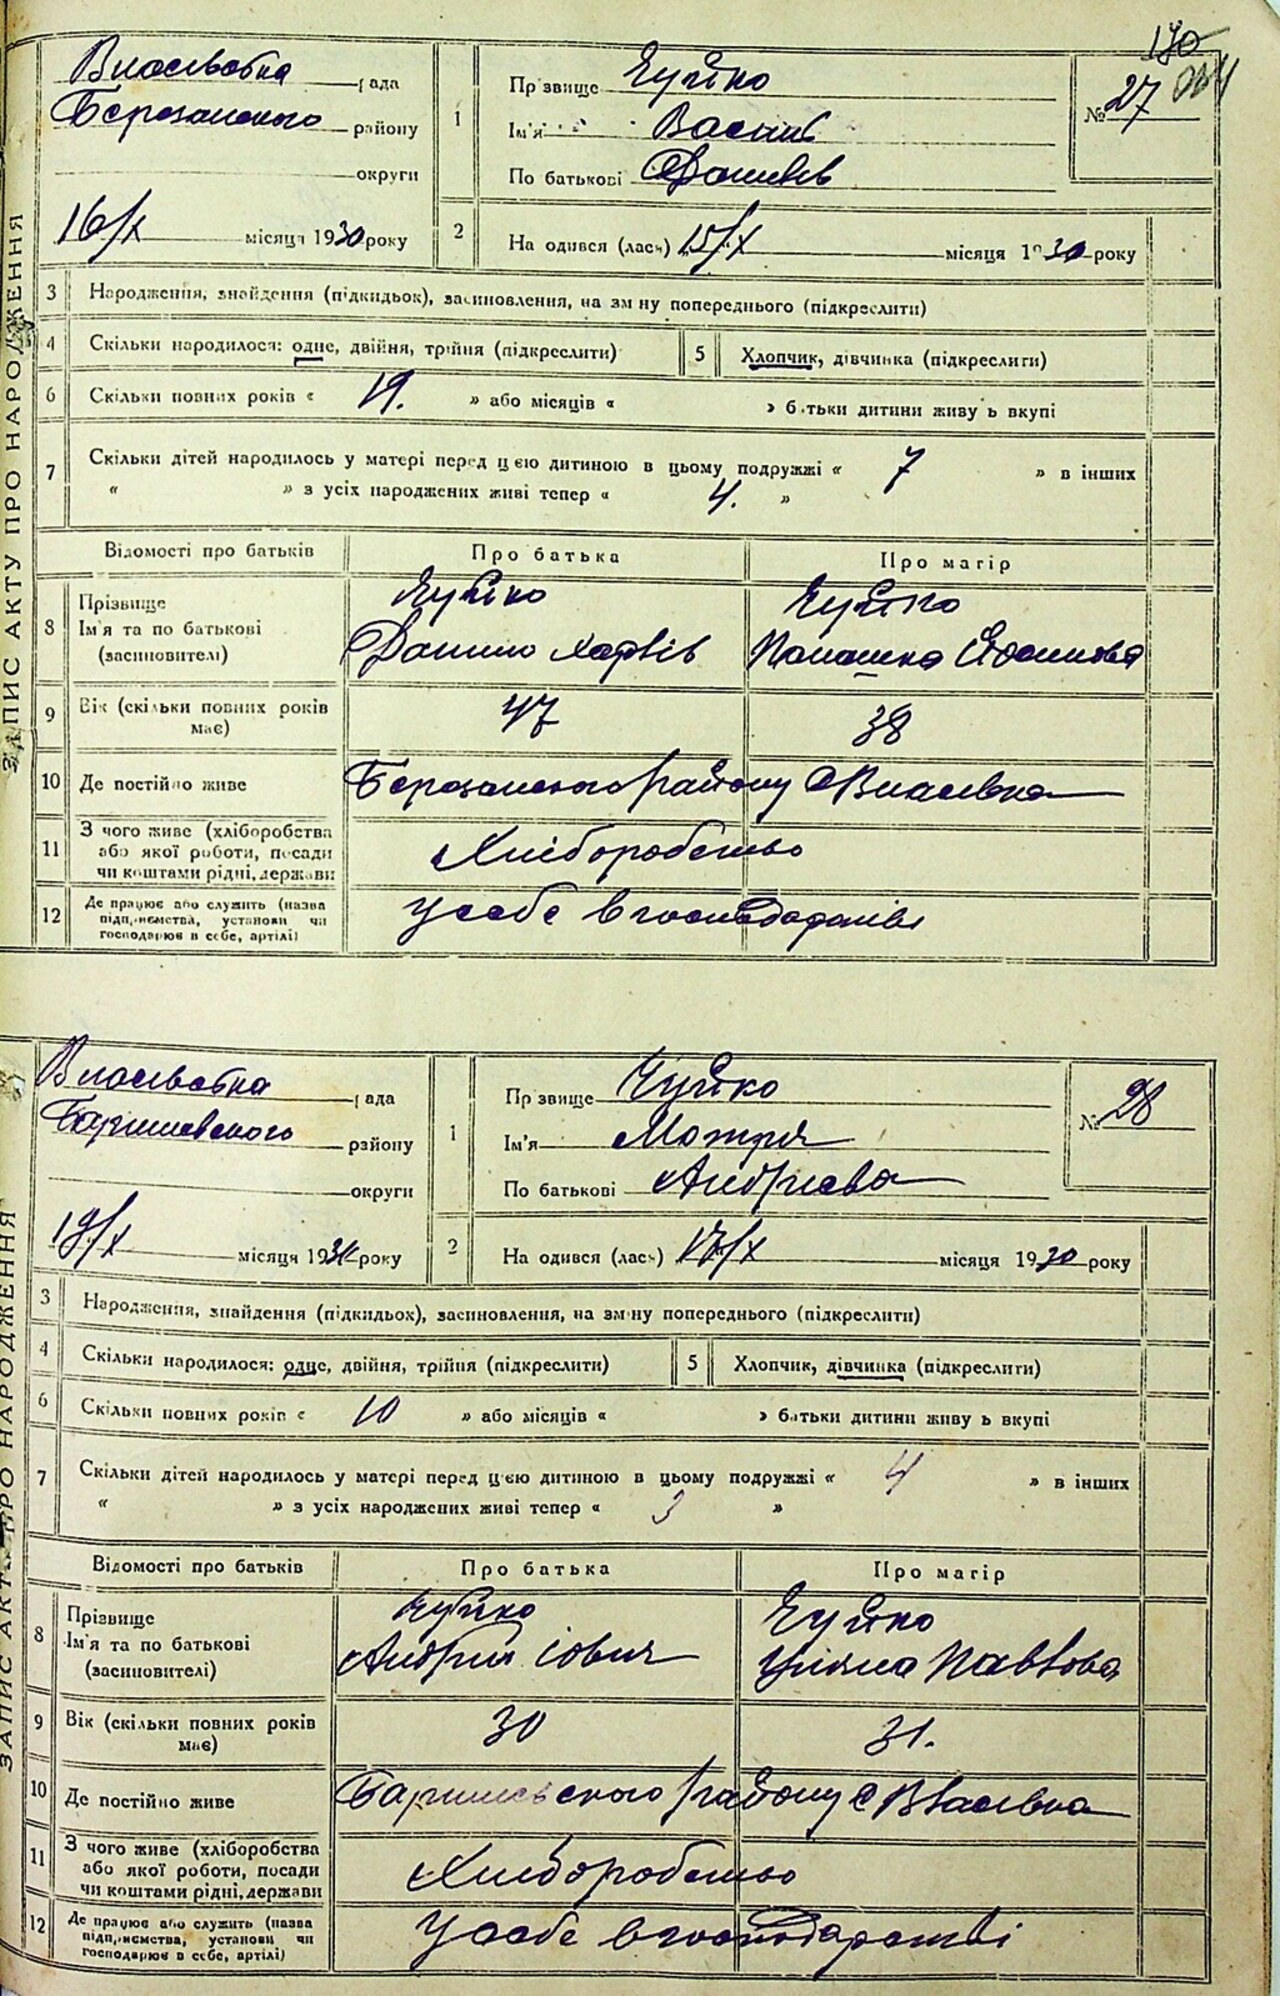 170
ЗАПИС АКТУ ПРО НАРОДЖЕННЯ
Власівська рада
Березанського району
округи
16/X місяця 1930 року
1
Прізвище Чуйко
Ім'я Василь
По батькові Данилів
№ 27
2
Народився (лась) 15/X місяця 1930 року
3 Народження, знайдення (підкидьок), засиновлення, на зміну попереднього (підкреслити)
4 Скільки народилося: одне, двійня, трійня (підкреслити)
5 Хлопчик, дівчинка (підкреслити)
6 Скільки повних років « 19. » або місяців « » батьки дитини живуть вкупі
7 Скільки дітей народилось у матері перед цією дитиною в цьому подружжі « 7 » в інших
« » з усіх народжених живі тепер « 4. »
Відомості про батьків Про батька Про матір
8 Прізвище
Ім'я та по батькові
(засиновителі)
Чуйко
Данило
Чуйко
9 Вік (скільки повних років
має)
47
38
10 Де постійно живе Березанського району с Власівка
11 З чого живе (хліборобства
або якої роботи, посади
чи коштами рідні, держави
Хліборобство
12 Де працює або служить (назва
підприємства, установи чи
господарює в себе, артілі)
У себе в господарстві
ЗАПИС АКТУ ПРО НАРОДЖЕННЯ
Власівська рада
Баришевського району
округи
19/X місяця 1930 року
1
Прізвище Чуйко
Ім'я Мотря
По батькові Андрієва
№ 28
2
Народився (лась) 17/X місяця 1930 року
3 Народження, знайдення (підкидьок), засиновлення, на зміну попереднього (підкреслити)
4 Скільки народилося: одне, двійня, трійня (підкреслити)
5 Хлопчик, дівчинка (підкреслити)
6 Скільки повних років « 10 » або місяців « » батьки дитини живуть вкупі
7 Скільки дітей народилось у матері перед цією дитиною в цьому подружжі « 4 » в інших
« » з усіх народжених живі тепер « 3 »
Відомості про батьків Про батька Про матір
8 Прізвище
Ім'я та по батькові
(засиновителі)
Чуйко
Андрій
Чуйко
Уляна Павлова
9 Вік (скільки повних років
має)
30
31.
10 Де постійно живе Баришевського району с Власівка
11 З чого живе (хліборобства
або якої роботи, посади
чи коштами рідні, держави
Хліборобство
12 Де працює або служить (назва
підприємства, установи чи
господарює в себе, артілі)
У себе в господарстві